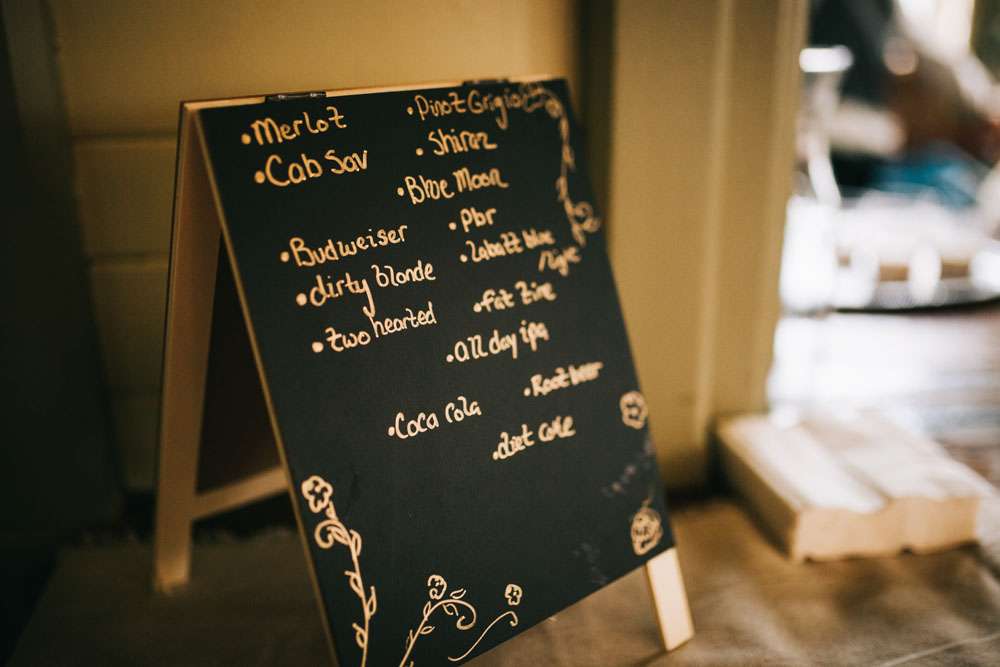 •Merlot
•Pinot Grigio
•Cab Sav
•Shiraz
•Blue Moon
•Budweiser
•Pbr
•dirty blonde
•Labatt blue
/light
•two hearted
•fat tire
•all day ipa
•Root beer
•Coca cola
•diet coke